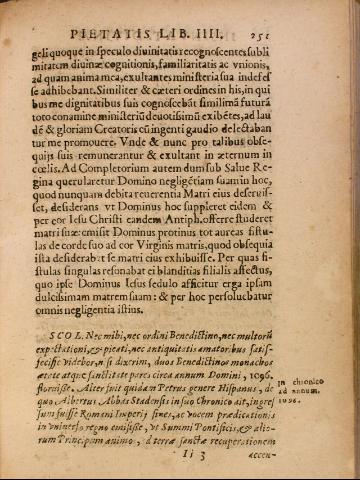 PIETATIS LIB. IIII. 251
geli quoque in speculo diuinitatis recognoscentes subli
mitatem diuinæ cognitionis, familiaritatis ac vnionis,
ad quam anima mea, exultantes ministeria sua indefes
se adhibebant. Similiter & cæteri ordines in his, in qui
bus me dignitatibus suis cognoscebāt similimā futurā
toto conamine ministeriū deuotissimū exibētes, ad lau
dē & gloriam Creatoris cū ingenti gaudio delectaban
tur me promouere. Vnde & nunc pro talibus obse-
quijs suis remunerantur & exultant in æternum in
cœlis. Ad Completorium autem dum sub Salue Re
gina quereretur Domino negligētiam suam in hoc,
quod nunquam debita reuerentia Matri eius deseruis-
set, desiderans vt Dominus hoc suppleret eidem &
per cor Iesu Christi eandem Antiph. offerre studeret
matri suæ: emisit Dominus protinus tot aureas fistu-
las de corde suo ad cor Virginis matris, quod obsequia
ista desiderabat se matri eius exhibuisse. Per quas fi-
stulas singulas resonabat ei blanditias filialis affectus,
quo ipse Dominus Iesus sedulo afficitur erga ipsam
dulcissimam matrem suam: & per hoc persoluebatur
omnis negligentia istius.
SCOL. Nec mihi, nec ordini Benedictino, nec multorū
expectationi, & pietati, nec antiquitatis amatoribus satis-
fecisse videbor, nisi dixerim, duos Benedictinos monachos
ætate atque sanctitate pares circa annum Domini, 1096.
floruisse. Alter fuit quidam Petrus genere Hispanus, de
quo Albertus Abbas Stadensis in suo Chronico ait, ingres
sum fuisse Romani Imperij fines, ac vocem prædicationis
in vniuerso regno emisisse, vt Summi Pontificis, & alio-
rum Princ. pam animo, d terræ sanctæ recuperationem
In chronico
ad annum.
1096.
Ii 3 accen-